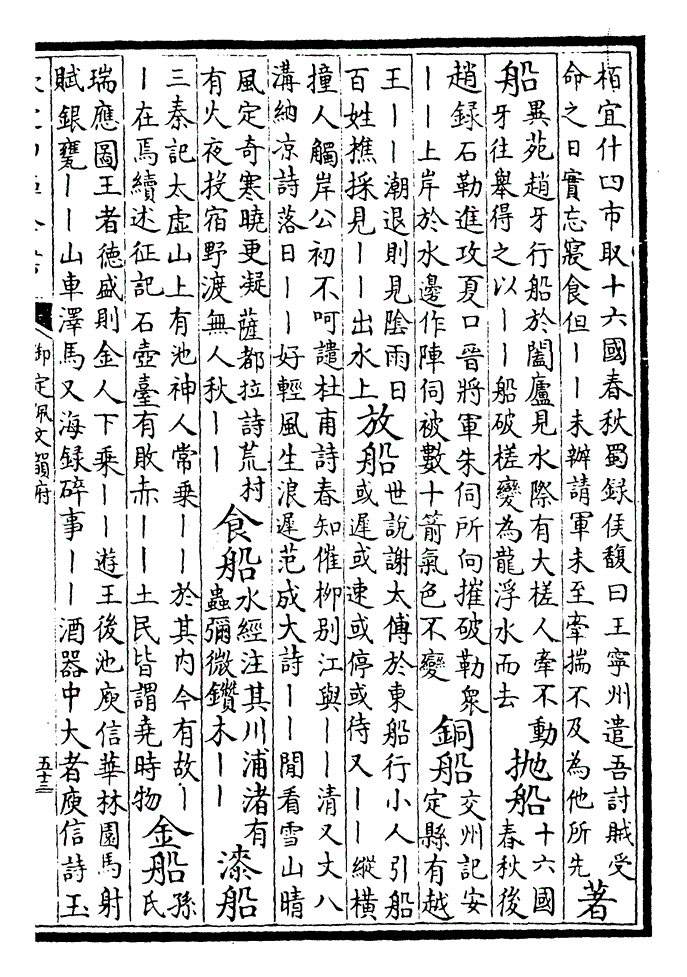 栢宜什四市取十六國春秋蜀録侯馥曰王寧州遣吾討賊受
命之日實忘寢食但——未辦請軍未至牽揣不及為他所先
著
船
異苑趙牙行船於闔廬見水際有大槎人牽不動
牙往舉得之以——船破槎變為龍浮水而去
拋船
十六國
春秋後
趙録石勒進攻夏口晉將軍朱伺所向摧破勒衆
——上岸於水邊作陣伺被數十箭氣色不變
銅船
交州記安
定縣有越
王——潮退則見陰雨日
百姓樵採見——出水上
放船
世說謝太傅於東船行小人引船
或遲或速或停或待又——縱橫
撞人觸岸公初不呵譴杜甫詩春知催柳别江與——清又丈八
溝納凉詩落日——好輕風生浪遲范成大詩——閒看雪山晴
風定奇寒曉更凝薩都拉詩荒村
有火夜投宿野渡無人秋——
食船
水經注其川浦渚有
蟲彌微鑽木——
漆船
三秦記太虚山上有池神人常乗——於其内今有故—
—在焉續述征記石壺臺有敗赤——土民皆謂堯時物
金船
孫
氏
瑞應圖王者徳盛則金人下乗——遊王後池庾信華林園馬射
賦銀甕——山車澤馬又海録碎事——酒器中大者庾信詩玉
御定佩文韻府
五十三